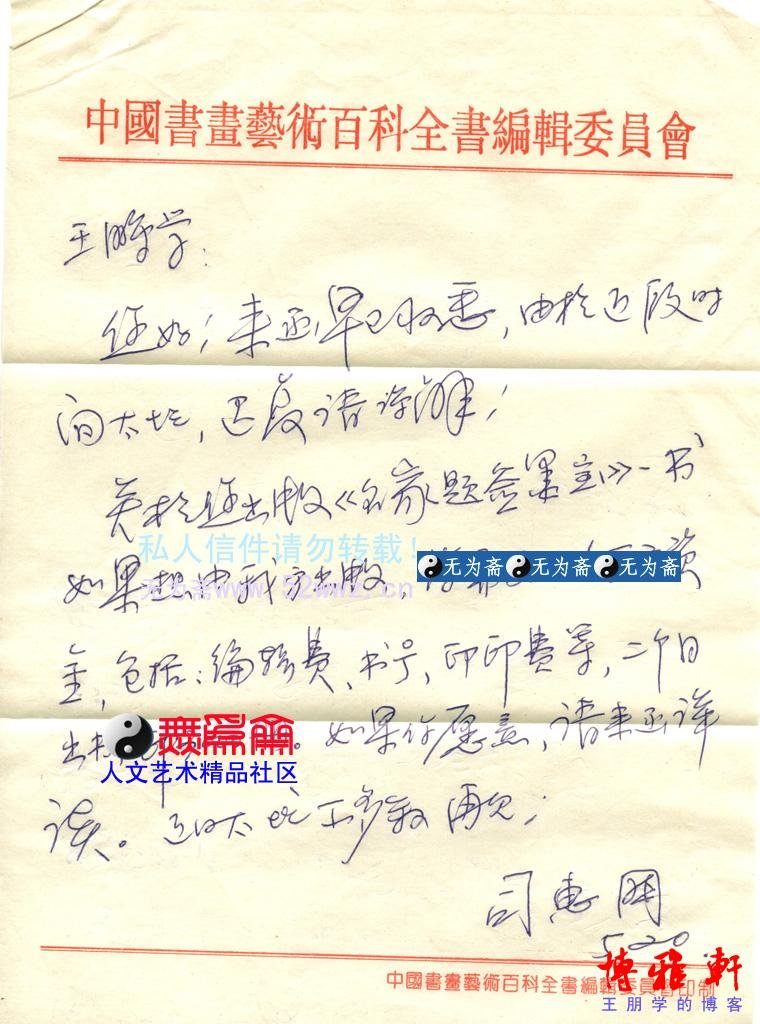 中國書畫藝術百科全書編輯委員會
王鵬学:
您好!来函早已收悉,由於近段时
间太忙,迟复请谅解!
关於您出版《名家题签墨宝》一书
私人信件请勿转载!
如果想由我方出版
无为斋 无为斋 无为斋
无为斋www.52wwz.cn
金,包括:编辑费、书号、印印费等,二个月
出书。如果你愿意,请来函详
無為齋
人文艺术精品社区
谈。近日太忙不多叙 再见!
司惠国
5.20
中國書畫藝術百科全書編輯委員會印制
博雅軒
王朋学的博客